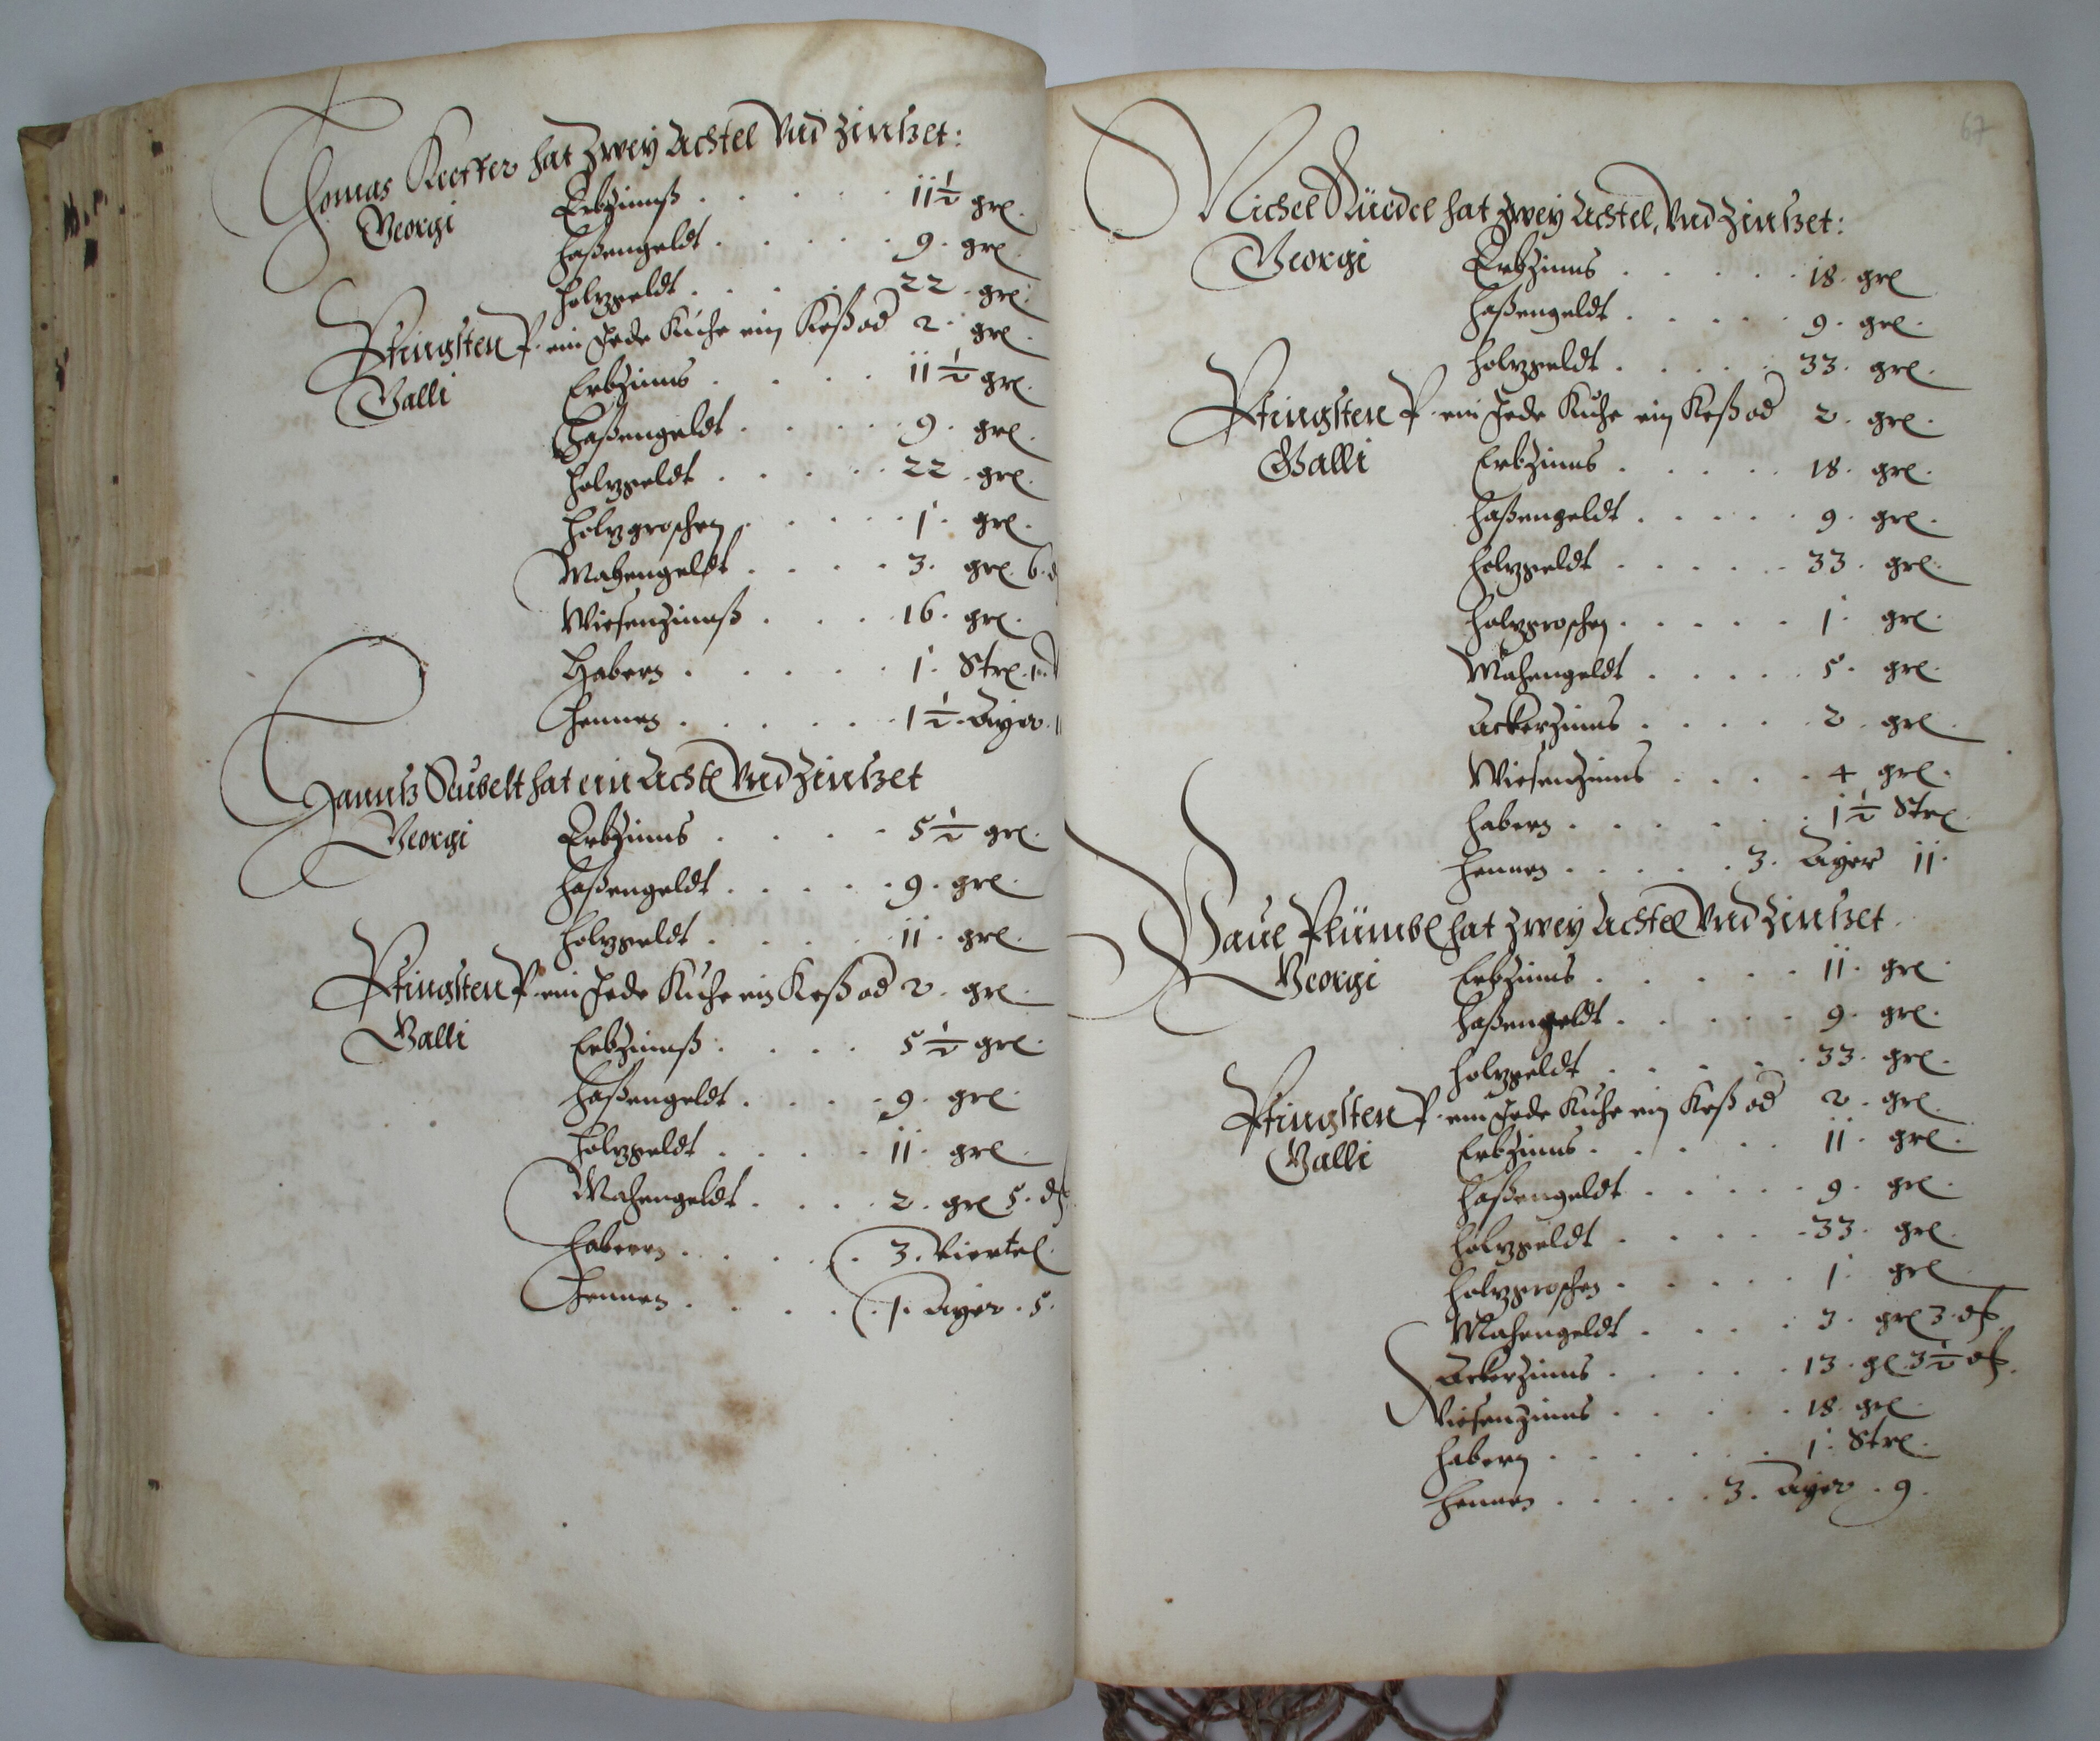 Thomas Keeffer hat zwey Achtel Vnd Zinßet:
Georgi Erbzinnß . . . . . 11½ grl.
Haßengeldt . . . . . 9. grl.
Holzgeldt . . . . 22. grl.
Pfingsten P. ein Jede Kuhe ein Keß od 2. grl.
Galli Erbzinns . . . . 11½ grl.
Haßengeldt . . . . . 9. grl.
Holzgeldt . . . . . 22. grl.
Holzgroschen . . . . . 1. grl.
Mahengeldt . . . . 3. grl. 6. d
Wiesenzinnß . . . 16. grl.
Habern . . . . . 1. Strl. 1.
Hennen . . . . . 1½. Ayer.
Hannß Seübelt hat ein Achtl Vnd Zinßet
Georgi Erbzinns . . . . 5½ grl.
Haßengeldt . . . . . 9. grl.
Holzgeldt . . . . . 11. grl.
Pfingsten P. ein Jede Kuhe ein Keß od 2. grl.
Galli Erbzinnß . . . . 5½ grl.
Haßengeldt . . . . 9. grl.
Holzgeldt . . . . 11. grl.
Mahengeldt . . . . 2. grl 5. d.
Habern . . . . . 3. Viertel.
Hennen . . . . . 1. Ayer. 5.
67
Michel Rüedel hat zwey Achtel, Vnd Zinßet:
Georgi Erbzinns . . . . . 18. grl
Haßengeldt . . . . . 9. grl.
Holzgeldt . . . . . 33. grl.
Pfingsten P. ein Jede Kuhe ein Keß od 2. grl.
Galli Erbzinns . . . . . 18. grl.
Haßengeldt . . . . . 9. grl.
Holzgeldt . . . . . 33. grl.
Holzgroschen . . . . . 1. grl.
Mahengeldt . . . . . 5. grl.
Ackerzinns . . . . . 2. grl.
Wiesenzinns . . . . 4 grl.
Habern . . . . . . 1½ Strl.
Hennen . . . . . 3. Ayer 11.
Paul Plümbl hat zwey Achtel Vnd Zinßet.
Georgi Erbzinns . . . . . 11. grl.
Haßengeldt . . . . . 9. grl.
Holzgeldt . . . . . 33. grl.
Pfingsten P. ein Jede Kuhe ein Keß od 2. grl.
Galli Erbzinns . . . . . 11. grl.
Haßengeldt . . . . . 9. grl.
Holzgeldt . . . . . 33. grl.
Holzgroschen . . . . . 1. grl
Mahengeldt . . . . 3. grl 3. d.
Ackerzinns . . . . . 13. gl 3½ d.
Wiesenzinns . . . . . 18. grl.
Habern . . . . . . 1. Strl.
Hennen . . . . . 3. Ayer. 9.